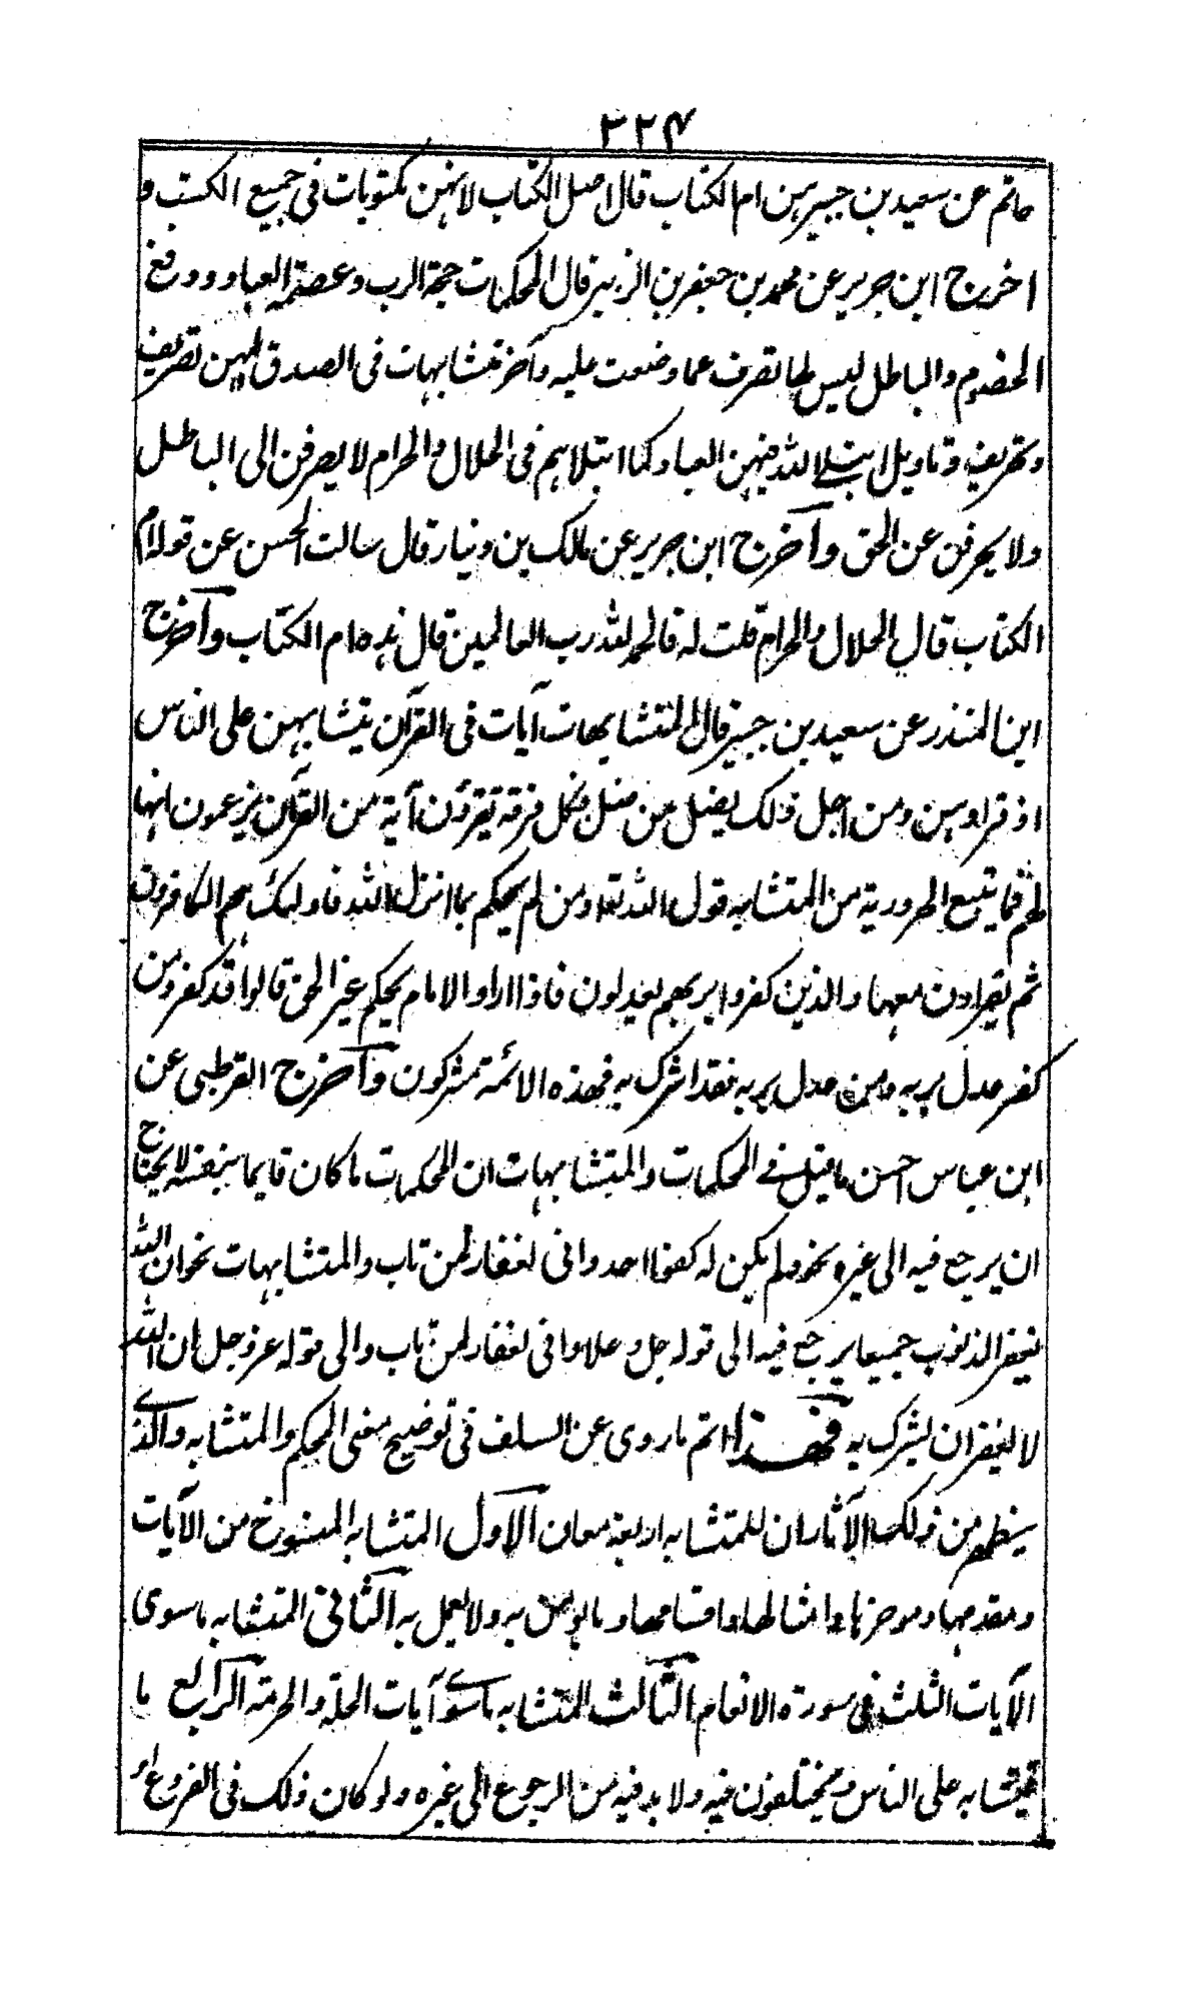 ۲۲۴
حاتم عن سعيد بن جبير هن ام الكتاب قال اصل الكتاب لانهن مكتوبات فى جميع الكتب و
اخرج ابن جرير عن محمد بن جعفر بن الزبير قال المحكمات حجة الرب وعصمة العباد ودفع
الخصوم والباطل ليس لها تصرف عما وضعت عليه وآخر متشابهات فى الصدق لهن تصريف
وتحريف وتاويل ابتلى الله فيهن العباد كما ابتلاهم فى الحلال والحرام لا يصرفن الى الباطل
ولا يحرفن عن الحق وآخرج ابن جرير عن مالك بن دينار قال سالت الحسن عن قوله ام
الكتاب قال الحلال والحرام قلت له فالحمد لله رب العالمين قال هذه ام الكتاب وآخرج
ابن المنذر عن سعيد بن جبير قال المتشابهات آيات فى القرآن يتشابهن على الناس
اذ قرأوهن ومن اجل ذلك يضل من ضل فكل فرقة تقرؤن آية من القرآن يزعمون انها
لهم فما يتبع الحرورية من المتشابه قول الله تعا ومن لم يحكم بما انزل الله فاولئك هم الكافرون
ثم يقرأون معها والذين كفروا بربهم يعدلون فاذا اراوا الامام يحكم غير الحق قالوا قد كفر ومن
كفر عدل بربه ومن عدل بربه فقد اشرك به فهذه الائمة مشركون وآخرج القرطبى عن
ابن عباس احسن ما قيل فے المحكمات والمتشابهات ان المحكمات ما كان قايما بنفسه لا يحتاج
ان يرجع فيه الى غيره نحو ولم يكن له كفوا احد وانى لغفار لمن تاب والمتشابهات نحو ان الله
يغفر الذنوب جميعا يرجع فيه الى قوله جل وعلا وانى لغفار لمن تاب والى قوله عز وجل ان الله
لا يغفر ان يشرك به فهذا اتم ما روى عن السلف فى توضيح معنى المحكم والمتشابه والذے
يظهر من ذلك الآثار ان للمتشابه اربعة معان الاول المتشابه المنسوخ من الآيات
ومقدمها وموخرها وامثالها واقسامها وما يؤمن به ولا يعمل به الثانى المتشابه ما سوى
الآيات الثلث فى سورة الانعام الثالث المتشابه ما سوے آيات الحلة والحرمة الرابع ما
يتشابه على الناس ويختلفون فيه ولا بد فيه من الرجوع الى غيره ولو كان ذلك فى الفروع او